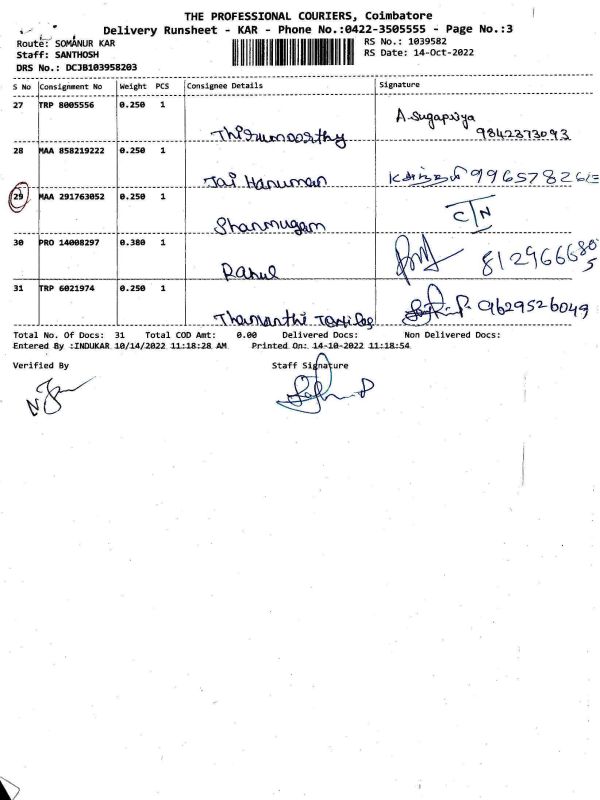 THE PROFESSIONAL COURIERS, Coimbatore
Delivery Runsheet - KAR - Phone No.:0422-3505555 - Page No.:3
Route: SOMANUR KAR
RS No.: 1039582
Staff: SANTHOSH
RS Date: 14-Oct-2022
DRS No.: DCJB103958203
S No Consignment No Weight PCS Consignee Details Signature
27 TRP 8005556 0.250 1 Thirumoorthy A.Sugapriya
9842373093
28 MAA 858219222 0.250 1 Jai Hanuman 996578261
29 MAA 291763052 0.250 1 Shanmugam CTN
30 PRO 14008297 0.380 1 Rahul 8129666805
31 TRP 6021974 0.250 1 Thamanthi 9629526049
Total No. Of Docs: 31 Total COD Amt: 0.00 Delivered Docs: Non Delivered Docs:
Entered By :INDUKAR 10/14/2022 11:18:28 AM Printed On: 14-10-2022 11:18:54
Verified By Staff Signature